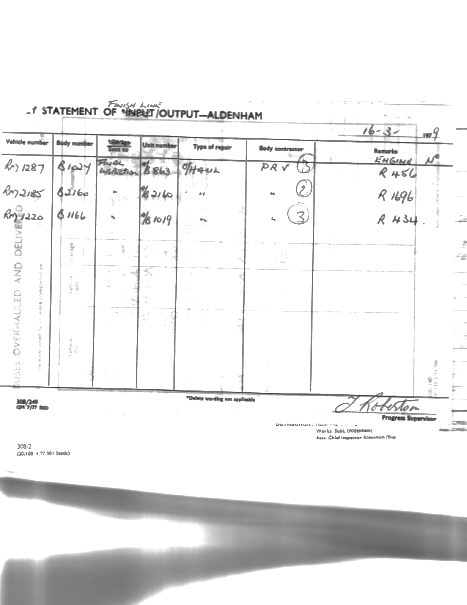 FINISH LINE
STATEMENT OF *INPUT/OUTPUT—ALDENHAM
16-3- 1979
Vehicle number Body number Sent to Unit number Type of repair Body contractor Remarks
ENGINE Nº
RM1287 B1024 FINAL INSPECTION B863 O/HAUL PRV 3 R 456
RM2185 B2160 " B2160 " " 2 R 1696
RM1220 B1166 " B1019 " 3 R 434
BUSES OVERHAULED AND DELIVERED
308/249
*Delete wording not applicable
J Robertson
Progress Supervisor
Works Supt. (Aldenham)
Asst. Chief Inspector Aldenham
308/2